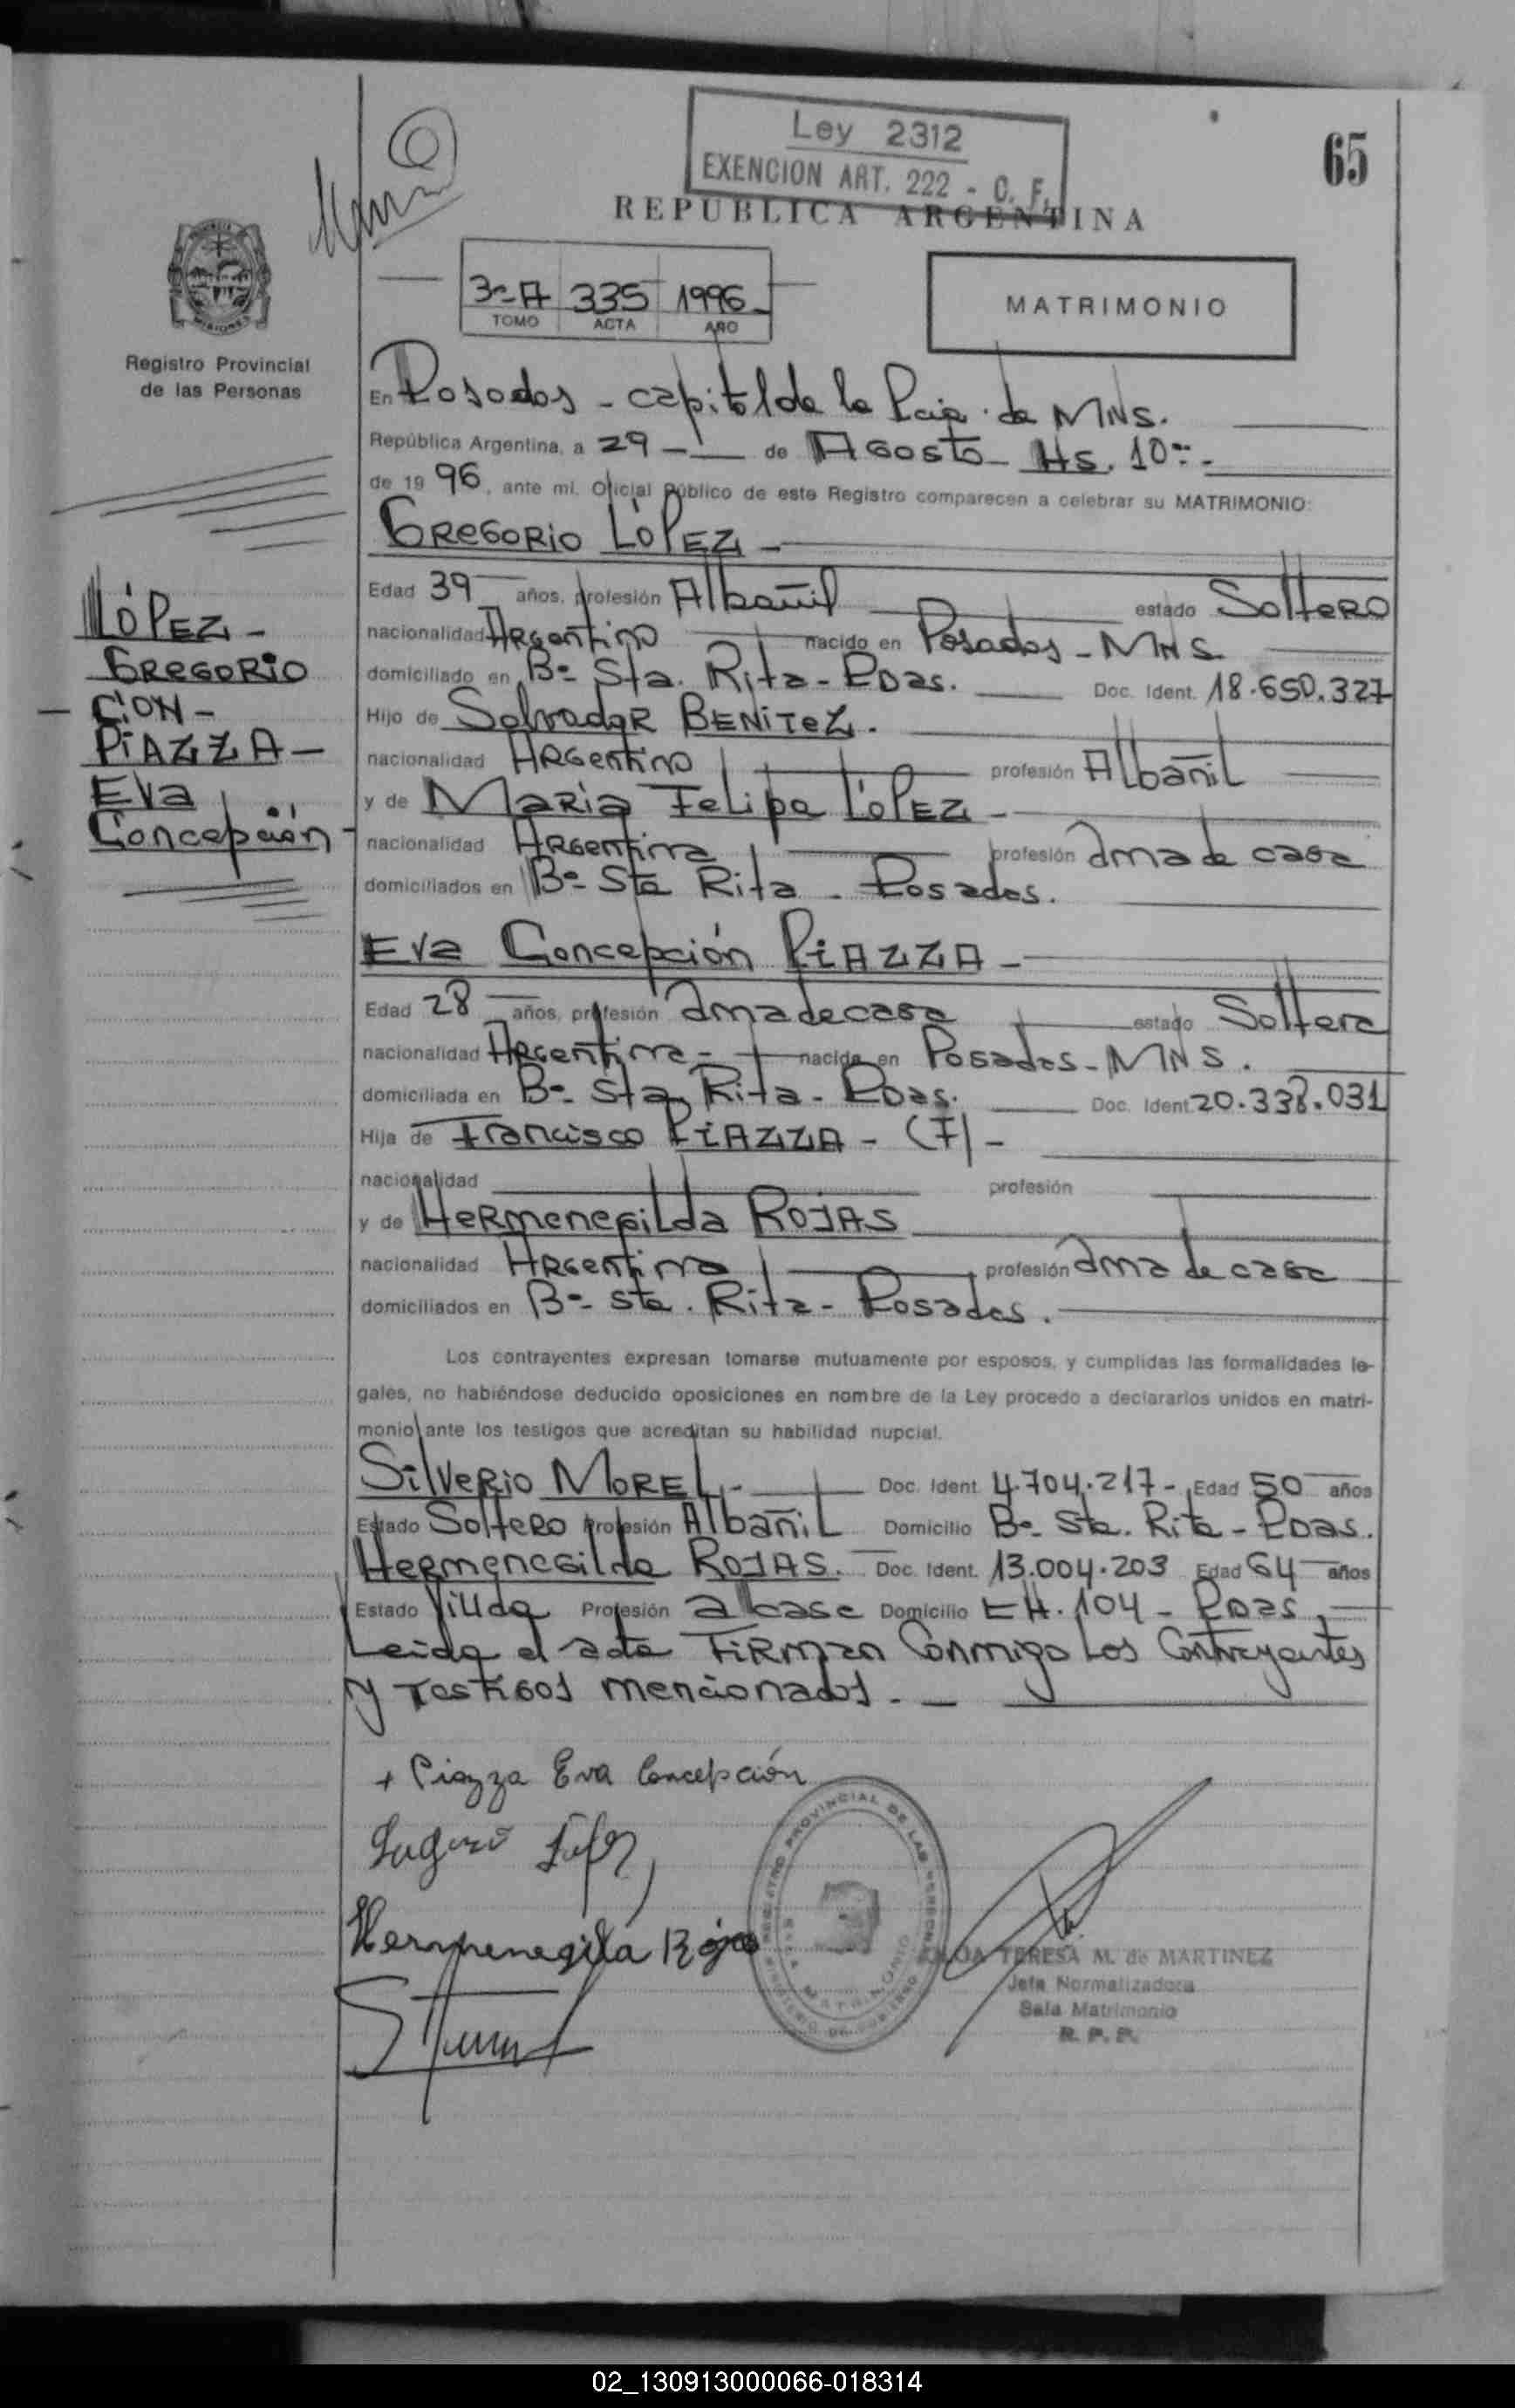 Ley 2312
EXENCION ART. 222 - C. F.
65
REPUBLICA ARGENTINA
3º-A 335 1996
TOMO ACTA AÑO
MATRIMONIO
MISIONES
Registro Provincial
de las Personas
En Posadas - capital de la Pcia. de MNS.
República Argentina, a 29 - de Agosto - Hs. 10 -
de 1996, ante mí, Oficial Público de este Registro comparecen a celebrar su MATRIMONIO:
GREGORIO LÓPEZ -
Edad 39 años, profesión Albañil estado Soltero
nacionalidad Argentino nacido en Posadas - MNS
domiciliado en Bº Sta. Rita - Pdas. Doc. Ident. 18.650.327
Hijo de Salvador BENITEZ.
nacionalidad Argentino profesión Albañil
y de María Felipa LÓPEZ -
nacionalidad Argentina profesión ama de casa
domiciliados en Bº Sta Rita - Posadas.
LÓPEZ -
GREGORIO
- CON -
PIAZZA -
Eva
Concepción -
Eva Concepción PIAZZA -
Edad 28 años, profesión ama de casa estado Soltera
nacionalidad Argentina - nacida en Posadas - MNS.
domiciliada en Bº Sta. Rita - Pdas. Doc. Ident. 20.338.031
Hija de Francisco PIAZZA - (F) -
nacionalidad profesión
y de Hermenegilda ROJAS
nacionalidad Argentina profesión ama de casa
domiciliados en Bº Sta. Rita - Posadas.
Los contrayentes expresan tomarse mutuamente por esposos, y cumplidas las formalidades le-
gales, no habiéndose deducido oposiciones en nombre de la Ley procedo a declararlos unidos en matri-
monio ante los testigos que acreditan su habilidad nupcial.
Silverio MOREL - Doc. Ident. 4.704.217 - Edad 50 años
Estado Soltero Profesión Albañil Domicilio Bº Sta. Rita - Pdas.
Hermenegilda ROJAS. Doc. Ident. 13.004.203 Edad 64 años
Estado Viuda Profesión a casa Domicilio CH. 104 - Pdas.
Leida el acta FIRMAN Conmigo Los Contrayentes
y Testigos mencionados. -
+ Piazza Eva Concepción
Hermenegilda Rojas
REGISTRO PROVINCIAL DE LAS PERSONAS
TERESA M. de MARTINEZ
Jefa Normalizadora
Sala Matrimonio
R. P. P.
02_130913000066-018314